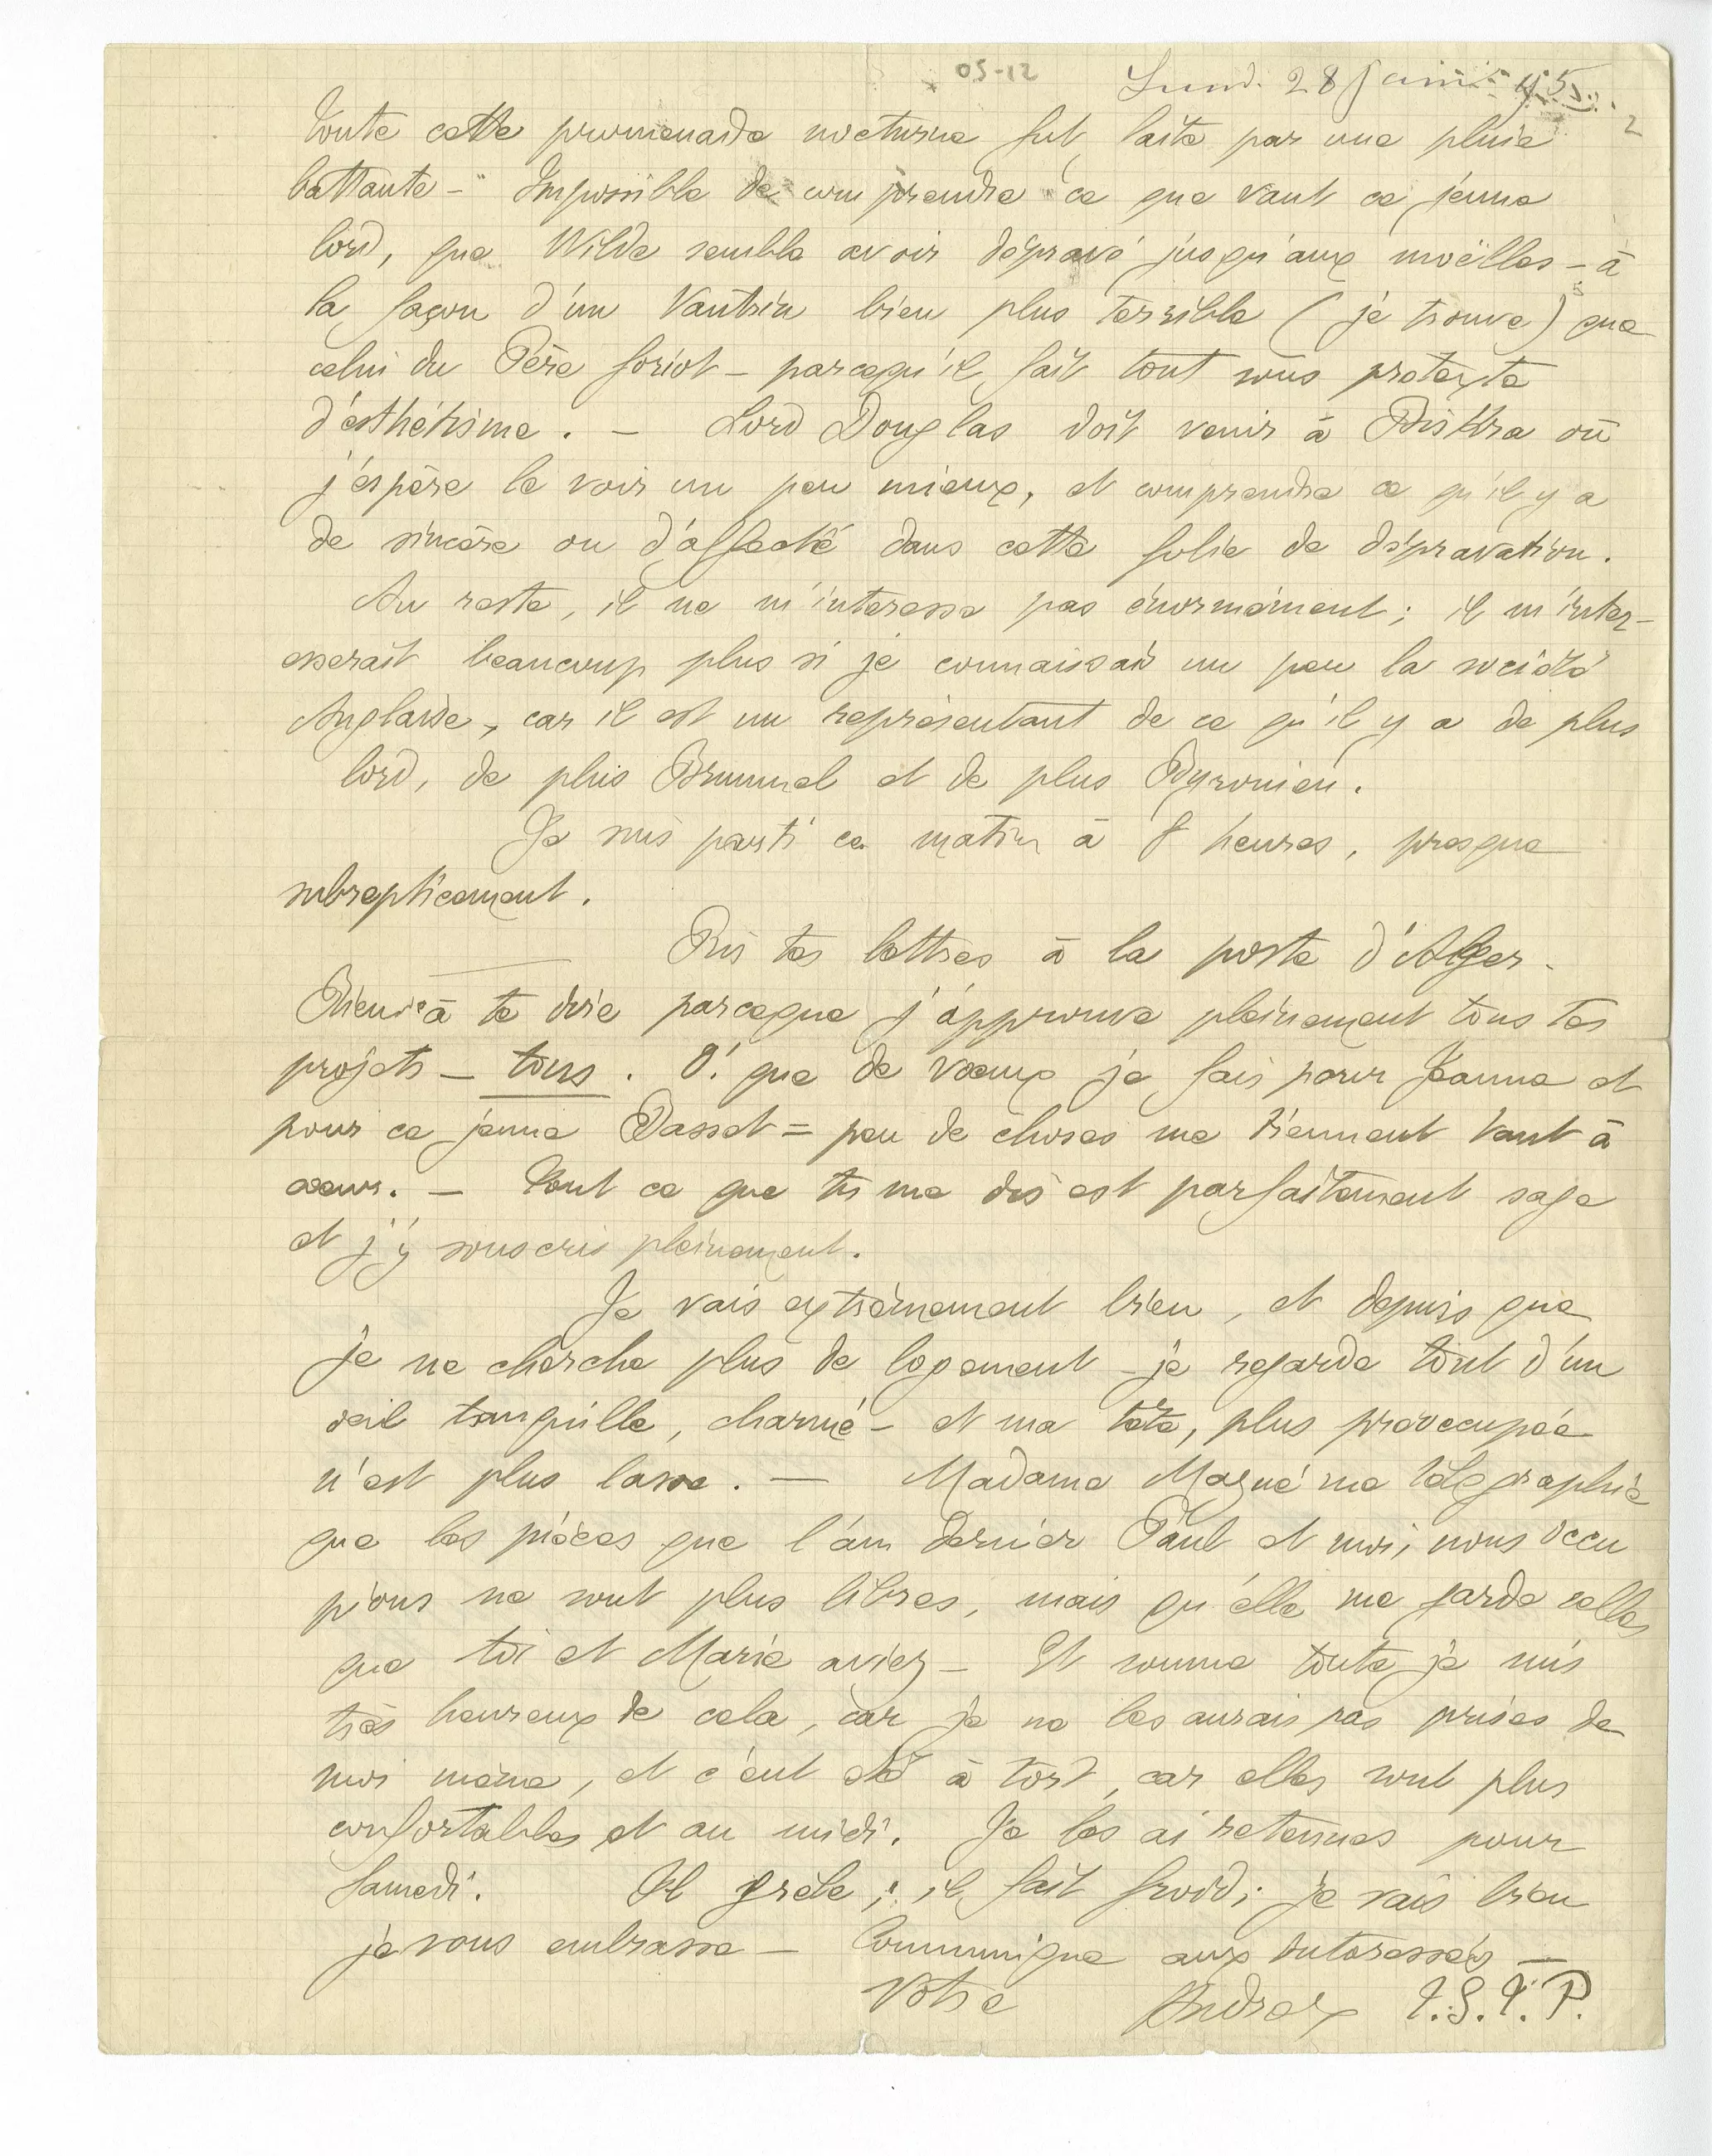 05-12
Lund. 28 Janv. 95
2
Toute cette promenade nocturne fut faite par une pluie
battante – Impossible de comprendre ce que vaut ce jeune
lord, que Wilde semble avoir dépravé jusqu'aux moëlles – à
la façon d'un Vautrin bien plus terrible (je trouve) que
celui du Père Goriot – parcequ'il fait tout sous prétexte
d'esthétisme. – Lord Douglas doit venir à Biskra où
j'espère le voir un peu mieux, et comprendre ce qu'il y a
de sincère ou d'affecté dans cette folie de dépravation.
Au reste, il ne m'intéresse pas énormément ; il m'intér-
esserait beaucoup plus si je connaissais un peu la société
Anglaise, car il est un représentant de ce qu'il y a de plus
lord, de plus Brummel et de plus Byronien.
Je suis parti ce matin à 8 heures, presque
subrepticement.
Pris tes lettres à la poste d'Alger.
Rien à te dire parceque j'approuve pleinement tous tes
projets – tous. O! que de voeux je fais pour Jeanne et
pour ce jeune Basset = peu de choses me tiennent tant à
coeur. – Tout ce que tu me dis est parfaitement sage
et j'y souscris pleinement.
Je vais extrêmement bien, et depuis que
je ne cherche plus de logement – je regarde tout d'un
oeil tranquille, charmé – et ma tête, plus préoccupée
n'est plus lasse. – Madame Magné me télégraphie
que les pièces que l'an dernier Paul et moi, nous occu
pions ne sont plus libres, mais qu'elle me garde celles
que toi et Marie aviez – Et somme toute je suis
très heureux de cela, car je ne les aurais pas prises de
moi même, et c'eut été à tort, car elles sont plus
confortables et au midi. Je les ai retenues pour
Samedi. Il grêle ; il fait froid ; je vais bien
je vous embrasse – Communique aux intéressés –
Votre Andrex T.S.T.P.